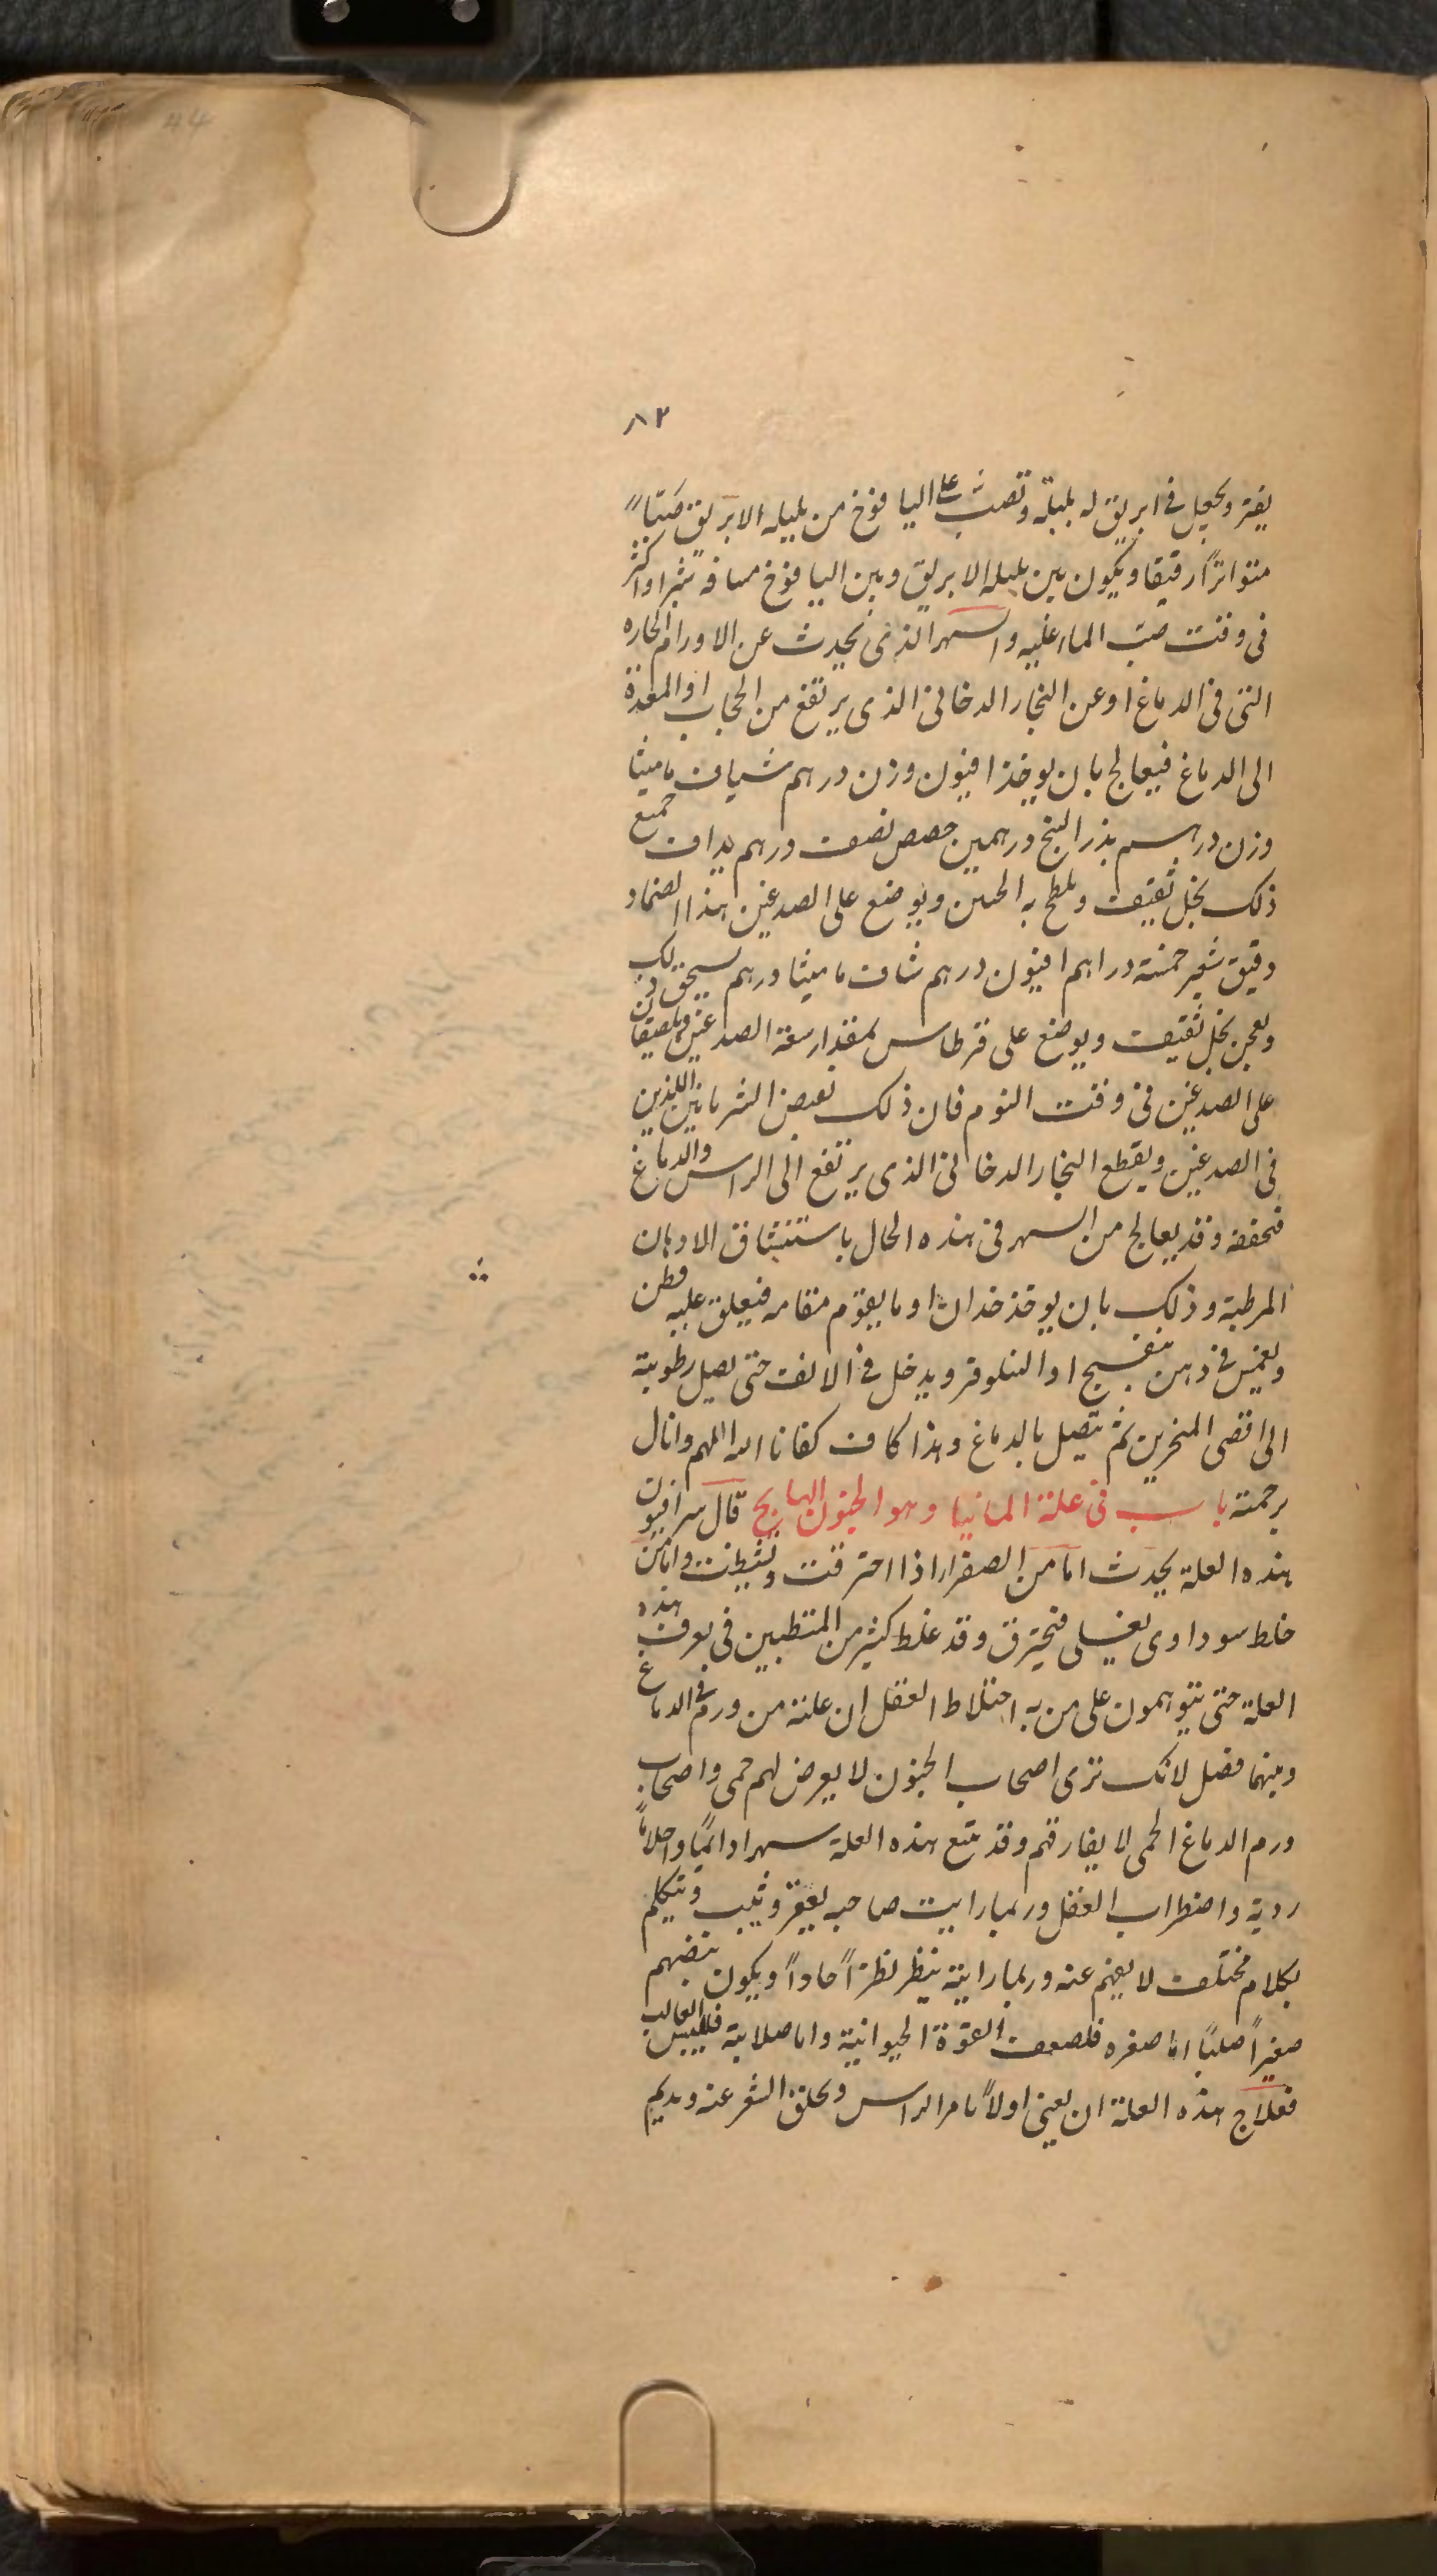 44
٨٢
يفتر ويجعل فى ابريق له بلبلة وتصب على اليافوخ من بلبله الابريق صبًا
متواترًا رقيقا ويكون بين بلبله الابريق وبين اليافوخ مسافه شبرا واكثر
فى وقت صب الماء عليه والسهر الذى يحدث عن الاورام الحاره
التى فى الدماغ او عن البخار الدخانى الذى يرتفع من الحجاب او المعدة
الى الدماغ فيعالج بان يوخذ افيون وزن درهم شياف ماميثا
وزن درهم بذر البنج درهمين حصص نصف درهم يداف جميع
ذلك بخل ثقيف ويلطخ به الجبين ويوضع على الصدغين هذا الضماد
دقيق شعير خمسة دراهم افيون درهم شاف ماميثا درهم يسحق ذلك
ويعجن بخل ثقيف ويوضع على قرطاس بمقدار سعة الصدغين ويلصقان
على الصدغين فى وقت النوم فان ذلك يقبض الشريانين اللذين
فى الصدغين ويقطع البخار الدخانى الذى يرتفع الى الراس والدماغ
فتحففه وقد يعالج من السهر فى هذه الحال باستنشاق الادهان
المرطبة وذلك بان يوخذ خدان او ما يقوم مقامه فيعلق عليه قطن
ويغمس فى دهن بنفسج او النلوفر ويدخل فى الانف حتى يصل رطوبته
الى اقصى المنخرين ثم تتصل بالدماغ وهذا كاف كفانا الله المهم وانال
برحمته باب فى علة المانيا وهو الجنون الهايج قال سرافيون
هذه العلة يحدث اما من الصفرا اذا احترقت وتشيطنت واما من
خلط سوداوى يغلى فيحترق وقد غلط كثير من المتطببين فى تعرف هذه
العلة حتى يتوهمون على من به اختلاط العقل ان علته من ورم فى الدماغ
وبينهما فصل لانك ترى اصحاب الجنون لا يعرض لهم حمى واصحاب
ورم الدماغ الحمى لا يفارقهم وقد يتبع هذه العلة سهرا دائمًا واحلامًا
رديه واضطراب العقل وربما رايت صاحبه يعقر ويثب ويتكلم
بكلام مختلف لا يفهم عنه وربما رايته ينظر نظرًا حادًا ويكون نبضهم
صغيرًا صلبًا اما صغره فلضعف القوة الحيوانية واما صلابته فلليبس الغالب
فعلاج هذه العلة ان يعنى اولًا بامر الراس ويحلق الشعر عنه ويديم